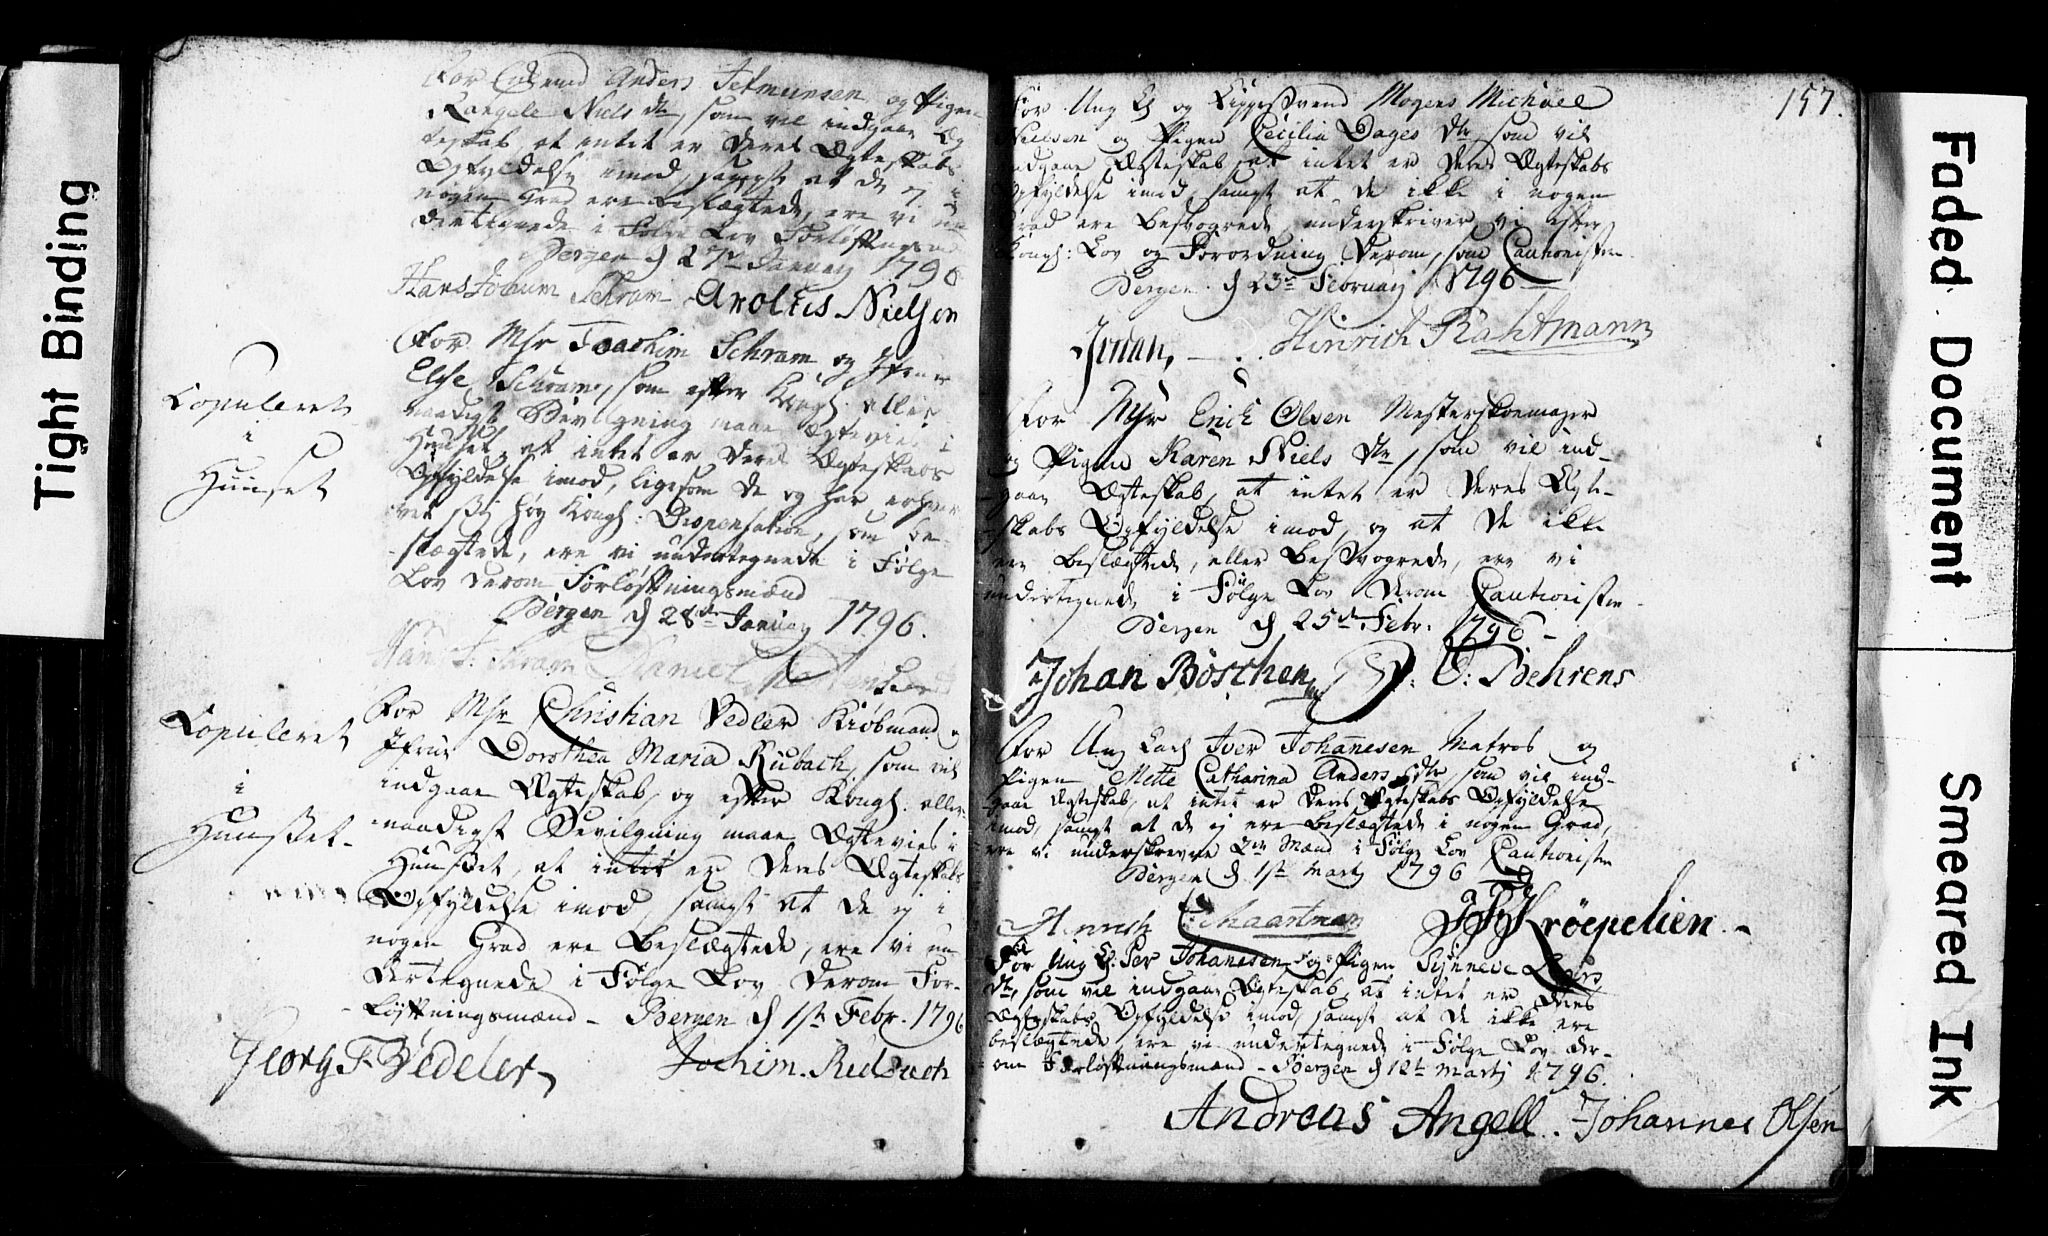 Tight Binding
For Enkemd Anders Tetmunsen og Pigen
Rangele Niels dtr, som vil indgaae Æg
teskab, at intet er Deres Ægteskabs
Opfyldelse imod, samt at de ej i
nogen Grad ere beslægtede, ere vi un
dertegnede i Følge Lov Forløftningsmd
Bergen d 27de January 1796
Hans Jochum Schram Arolies Nielsen
For Msr Joachim Schram og Jfrue
Elsje Schrams, som efter Kongl. aller
naadigst Bevilgning maae Ægtevies i
Huuset, at intet er Deres Ægteskabs
Opfyldelse imod, ligesom de og har erhver
vet sig høy Kongl: Dispensation, som be
slægtede, ere vi undertegnede i Følge
Lov derom Forløftningsmænd
Bergen d 28de January 1796.
Copuleret
i
Huuset
Hans J. Schram Daniel
For Msr Christian Vedler Kiøbmand o
Jfrue Dorothea Maria Rubach, som vil
indgaae Ægteskab, og efter Kongl. aller
naadigst Bevilgning maae Ægtevies i
Huusset, at intet er Deres Ægteskabs
Opfyldelse imod, samt at de ej i
nogen Grad ere beslægtede, ere vi un
dertegnede i Følge Lov derom For-
løftningsmænd - Bergen d 1ste Febr. 1796
Copuleret
i
Huusset-
Georg F Vedeler Jochim. Rudbach
157.
For Ung K og Liggesvend Mogens Michael
Nielsen og Pigen Cecilia Dages dtr som vil
indgaae Ægteskab, at intet er Deres Ægteskabs
Opfyldelse imod, samt at de ikke i nogen
Grad ere besvogrede underskriver vi efter
Kongl: Lov og Forordning derom, som Cautionister
Bergen d 23de February 1796
Hinrich Rahtmann
For Msr Erich Olsen Mesterskoemager
og Pigen Karen Niels dtr, som vil ind-
gaae Ægteskab, at intet er Deres Ægte-
skabs Opfyldelse imod, og at de ikke
ere beslægtede, eller besvogrede, ere vi
undertegnede i Følge Lov derom Cautionister
Bergen d 25de Febr. 1796 -
Johan Böschen O: Behrens
For Ung Karl Iver Johanesen Matros og
Pigen Mette Catharina Anders dtr, som vil ind-
gaae Ægteskab, at intet er Deres Ægteskabs Opfyldelse
imod, samt at de ej ere beslægtede i nogen Grad,
ere vi underskrevne Mænd i Følge Lov Cautionister
Bergen d. 1ste Martj 1796
Hinrich Schaartman Krøepelien. -
For Ung K. Per Johanesen og Pigen Synneve Lars
dtr, som vil indgaae Ægteskab, at intet er Deres
Ægteskabs Opfyldelse imod, samt at de ikke ere
beslægtede, ere vi undertegnede i Følge Lov der-
om Forløftningsmænd - Bergen d 12te Martj 1796.
Andreas Angell. Johannes Olsen
Faded Document
Smeared Ink